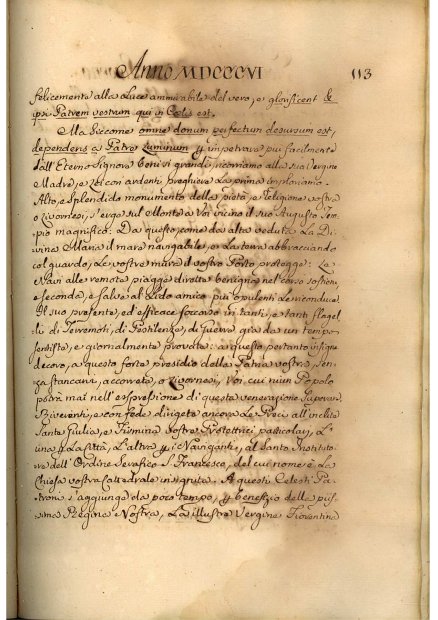 Anno MDCCCVI 113
felicemente alla Luce ammirabile del vero, e glorificent &
ipsi Patrem vestrum qui in Cœlis est.
Ma siccome omne donum perfectum desursum est,
dependens a Patre Luminum y impetrarvi piu facilmente
dall'Eterno Signore beni si grandi, ricorriamo alla sua Vergine
Madre, e con ardenti preghiere La prima imploriamo.
Alto, e splendido monumento della pietà, e religione vostra
o Livornesi, s'erge sul Monte a Voi vicino il suo Augusto Tem-
pio magnifico. Da questo, come da alta veduta La Di-
vina Maria il mare navigabile, e La terra abbracciando
col guardo, Le vostre mura il vostro Porto protegge: Le
Navi alle remote piagge dirette benigna nel corso sostiene,
e seconda, e salve al Lido amico più opulenti Le riconduce.
Il suo presente, ed efficace soccorso in tanti, e tanti flagel-
li di Terremoti, di Pestilenze, di Guerra già da un tempo
sentiste, e giornalmente provate: a questo pertanto insigne
decoro, a questo forte presidio della Patria vostra, sen-
za stancarvi, accorrete, o Livornesi, Voi cui niun Popolo
potrà mai nell'espressione di questa venerazione superare
Riverenti, e con fede dirigete ancora Le Preci all'inclita
Santa Giulia, e Firmina vostre Protettrici particolari, L'u-
na y La Città, L'altra y i Naviganti, al Santo Institutore
dell'Ordine Serafico S. Francesco, del cui nome è La
Chiesa vostra Cattedrale insignita. A questi Celesti Pa-
troni s'aggiunga da poco tempo, y benefizio della piis-
sima Regina Nostra, La illustre Vergine Fiorentina